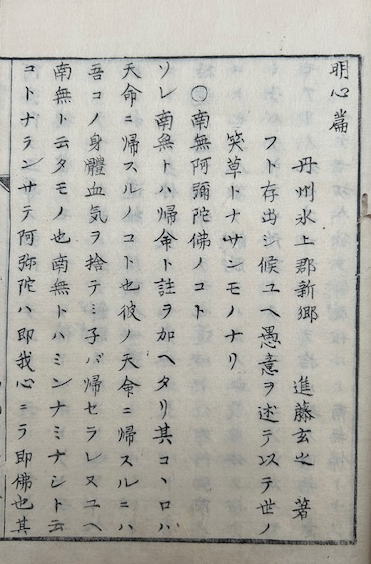 明心篇
丹州氷上郡新郷　進藤玄之　著
フト存出シ候ユヘ愚意ヲ述テ以テ世ノ
笑草トナサンモノナリ
〇南無阿彌陀佛ノコト
ソレ南無トハ帰命ト註ヲ加ヘタリ其コヽロハ
天命ニ帰スルノコト也彼ノ天命ニ帰スルニハ
吾コノ身體血気ヲ捨テミ子バ帰セラレヌユヘ
南無ト云タモノ也南無トハミンナミナシト云
コトナランサテ阿弥陀ハ即我心ニヲ即佛也其